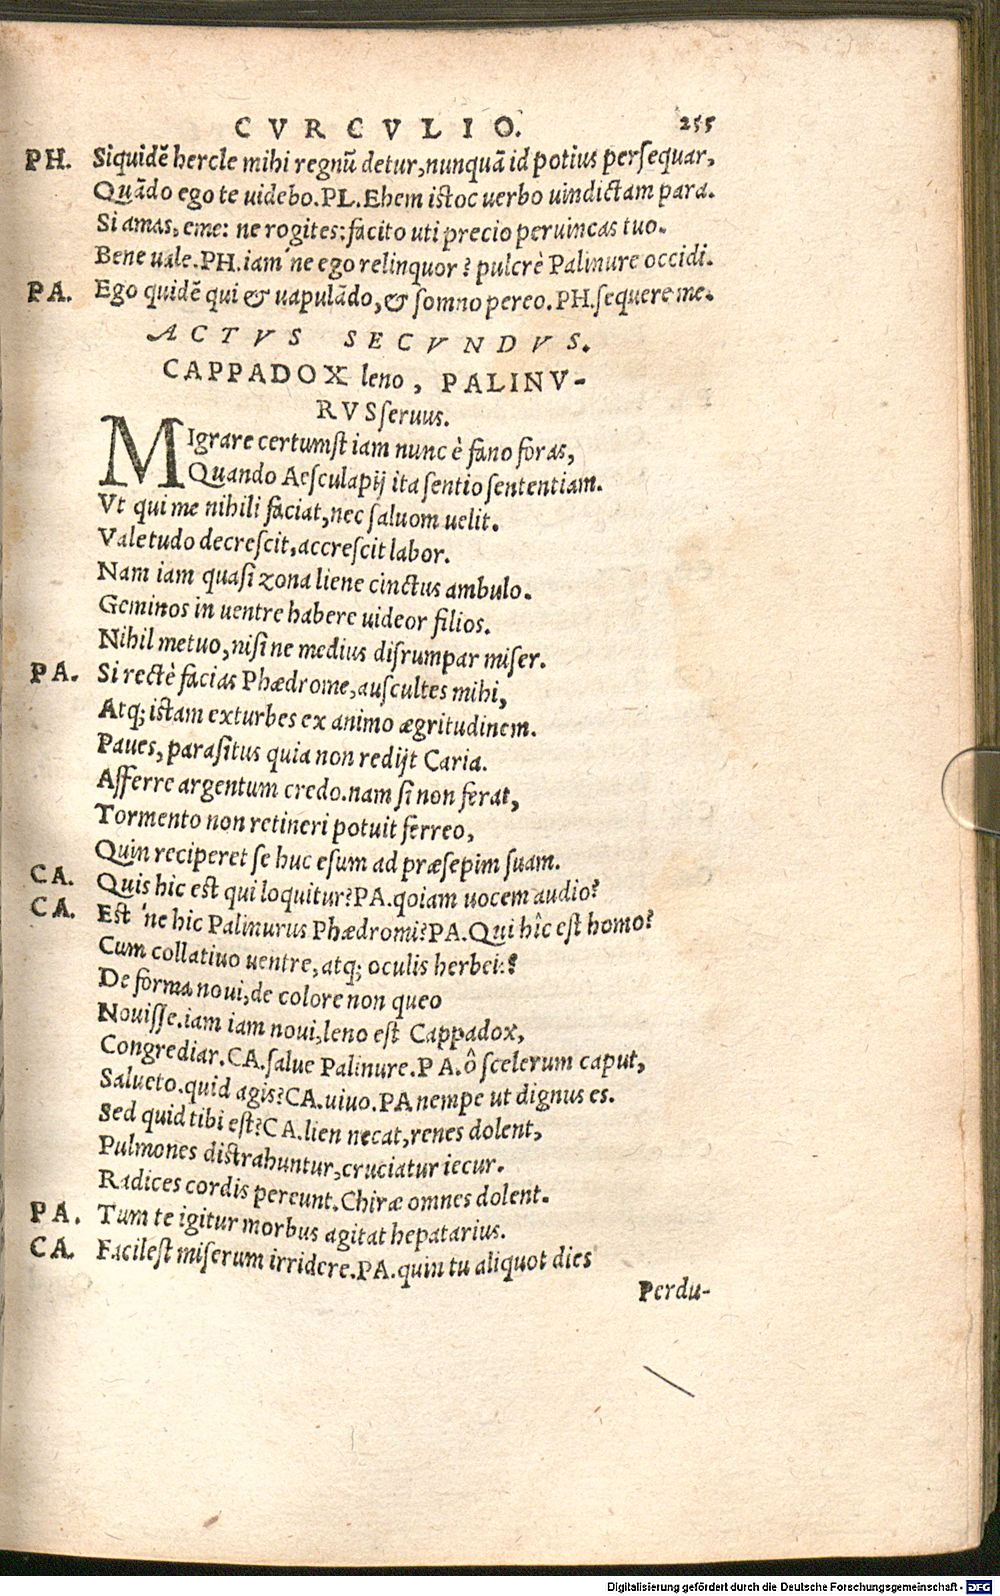 CVRCVLIO. 255
PH. Siquidē hercle mihi regnū detur, nunquā id potius persequar,
Quādo ego te uidebo. PL. Ehem istoc uerbo uindictam para.
Si amas, eme: ne rogites: facito uti precio peruincas tuo.
Bene uale. PH. iam'ne ego relinquor? pulcrè Palinure occidi.
PA. Ego quidē qui & uapulādo, & somno pereo. PH. sequere me.
ACTVS SECVNDVS.
CAPPADOX leno, PALINV-
RVS seruus.
MIgrare certumst iam nunc è fano foras,
Quando Aesculapij ita sentio sententiam.
Vt qui me nihili faciat, nec saluom uelit.
Valetudo decrescit, accrescit labor.
Nam iam quasi zona liene cinctus ambulo.
Geminos in uentre habere uideor filios.
Nihil metuo, nisi ne medius disrumpar miser.
PA. Si rectè facias Phædrome, auscultes mihi,
Atq; istam exturbes ex animo ægritudinem.
Paues, parasitus quia non redijt Caria.
Afferre argentum credo. nam si non ferat,
Tormento non retineri potuit ferreo,
Quin reciperet se huc esum ad præsepim suam.
CA. Quis hic est qui loquitur? PA. qoiam uocem audio?
CA. Est'ne hic Palinurus Phædromi? PA. Qui hîc est homo?
Cum collatiuo uentre, atq; oculis herbeis?
De forma noui, de colore non queo
Nouisse. iam iam noui, leno est Cappadox,
Congrediar. CA. salue Palinure. PA. ô scelerum caput,
Salueto. quid agis? CA. uiuo. PA nempe ut dignus es.
Sed quid tibi est? CA. lien necat, renes dolent,
Pulmones distrahuntur, cruciatur iecur.
Radices cordis pereunt. Chiræ omnes dolent.
PA. Tum te igitur morbus agitat hepatarius.
CA. Facilest miserum irridere. PA. quin tu aliquot dies
Perdu-
Digitalisierung gefördert durch die Deutsche Forschungsgemeinschaft - DFG